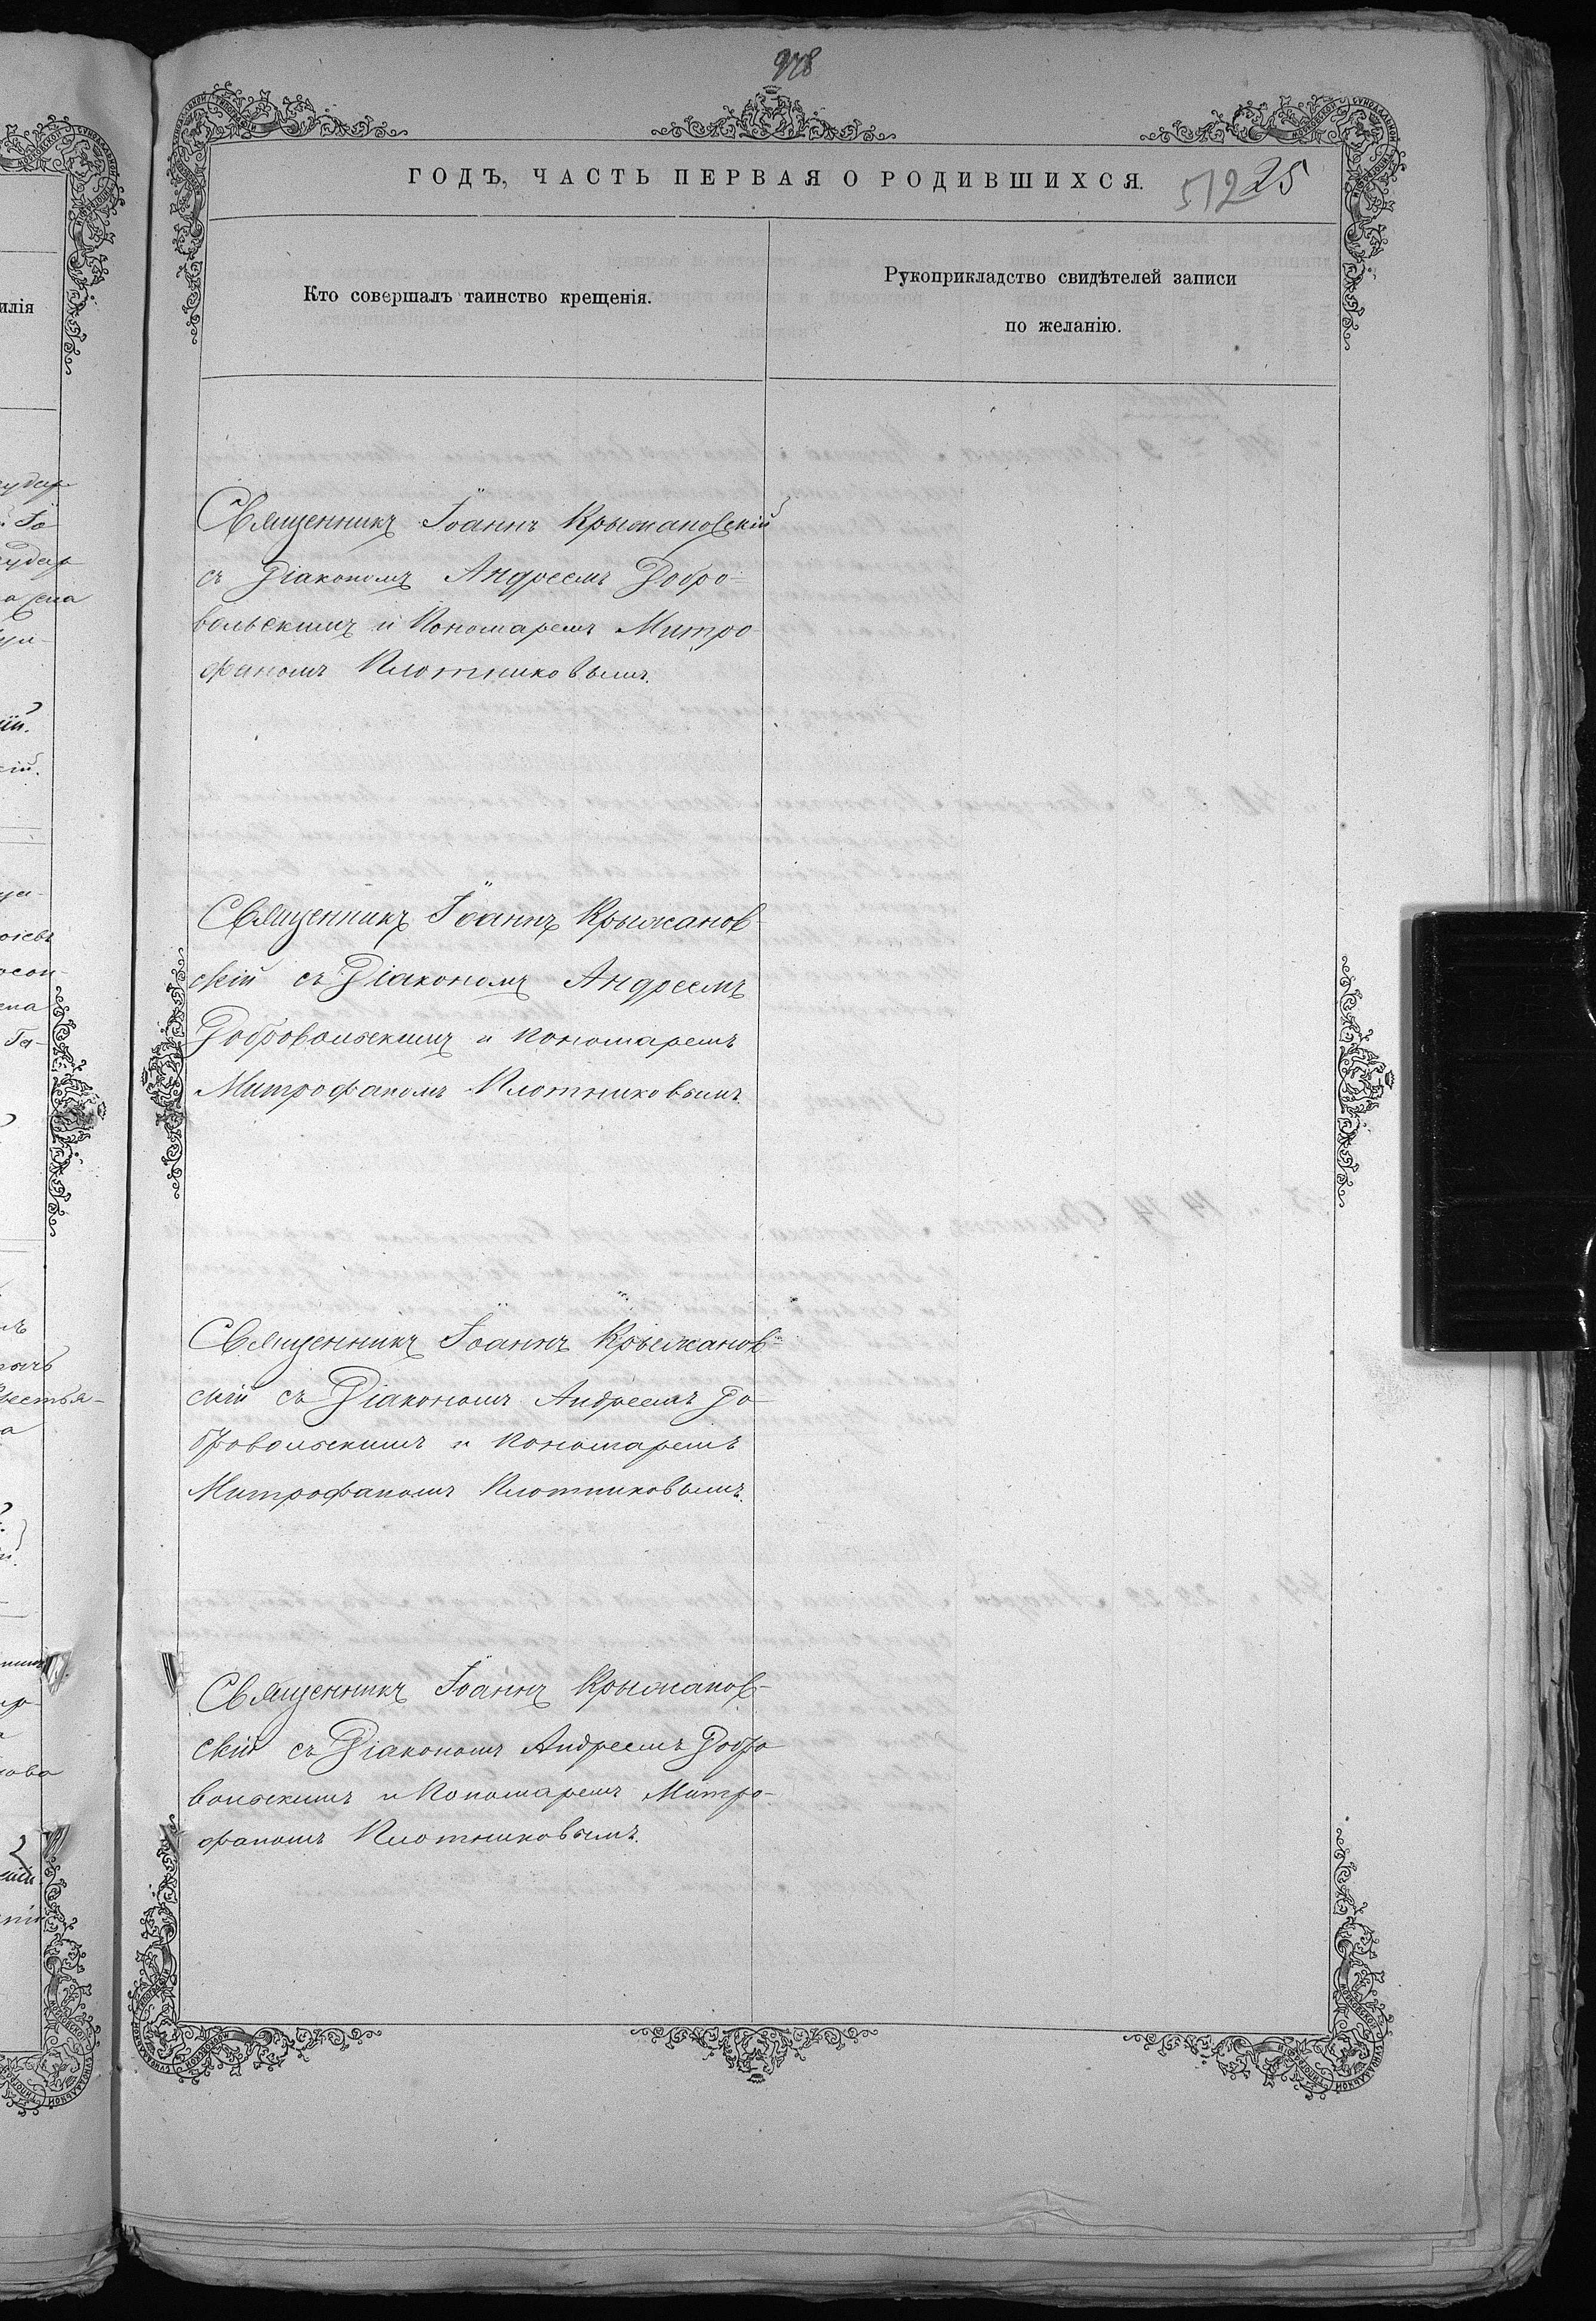 978
ГОДЪ, ЧАСТЬ ПЕРВАЯ О РОДИВШИХСЯ.
512 25
Кто совершалъ таинство крещенія.
Рукоприкладство свидѣтелей записи
по желанію.
илія
Священникъ Іоаннъ Крыжановскій
съ Діакономъ Андреемъ Добро-
вольскимъ и Пономаремъ Митро-
фаномъ Плотниковымъ.
Священникъ Іоаннъ Крыжанов-
скій съ Діакономъ Андреемъ
Добровольскимъ и Пономаремъ
Митрофаномъ Плотниковымъ.
Священникъ Іоаннъ Крыжанов-
скій съ Діакономъ Андреемъ До-
бровольскимъ и Пономаремъ
Митрофаномъ Плотниковымъ.
Священникъ Іоаннъ Крыжанов-
скій съ Діакономъ Андреемъ Добро
вольскимъ и Пономаремъ Митро-
фаномъ Плотниковымъ.